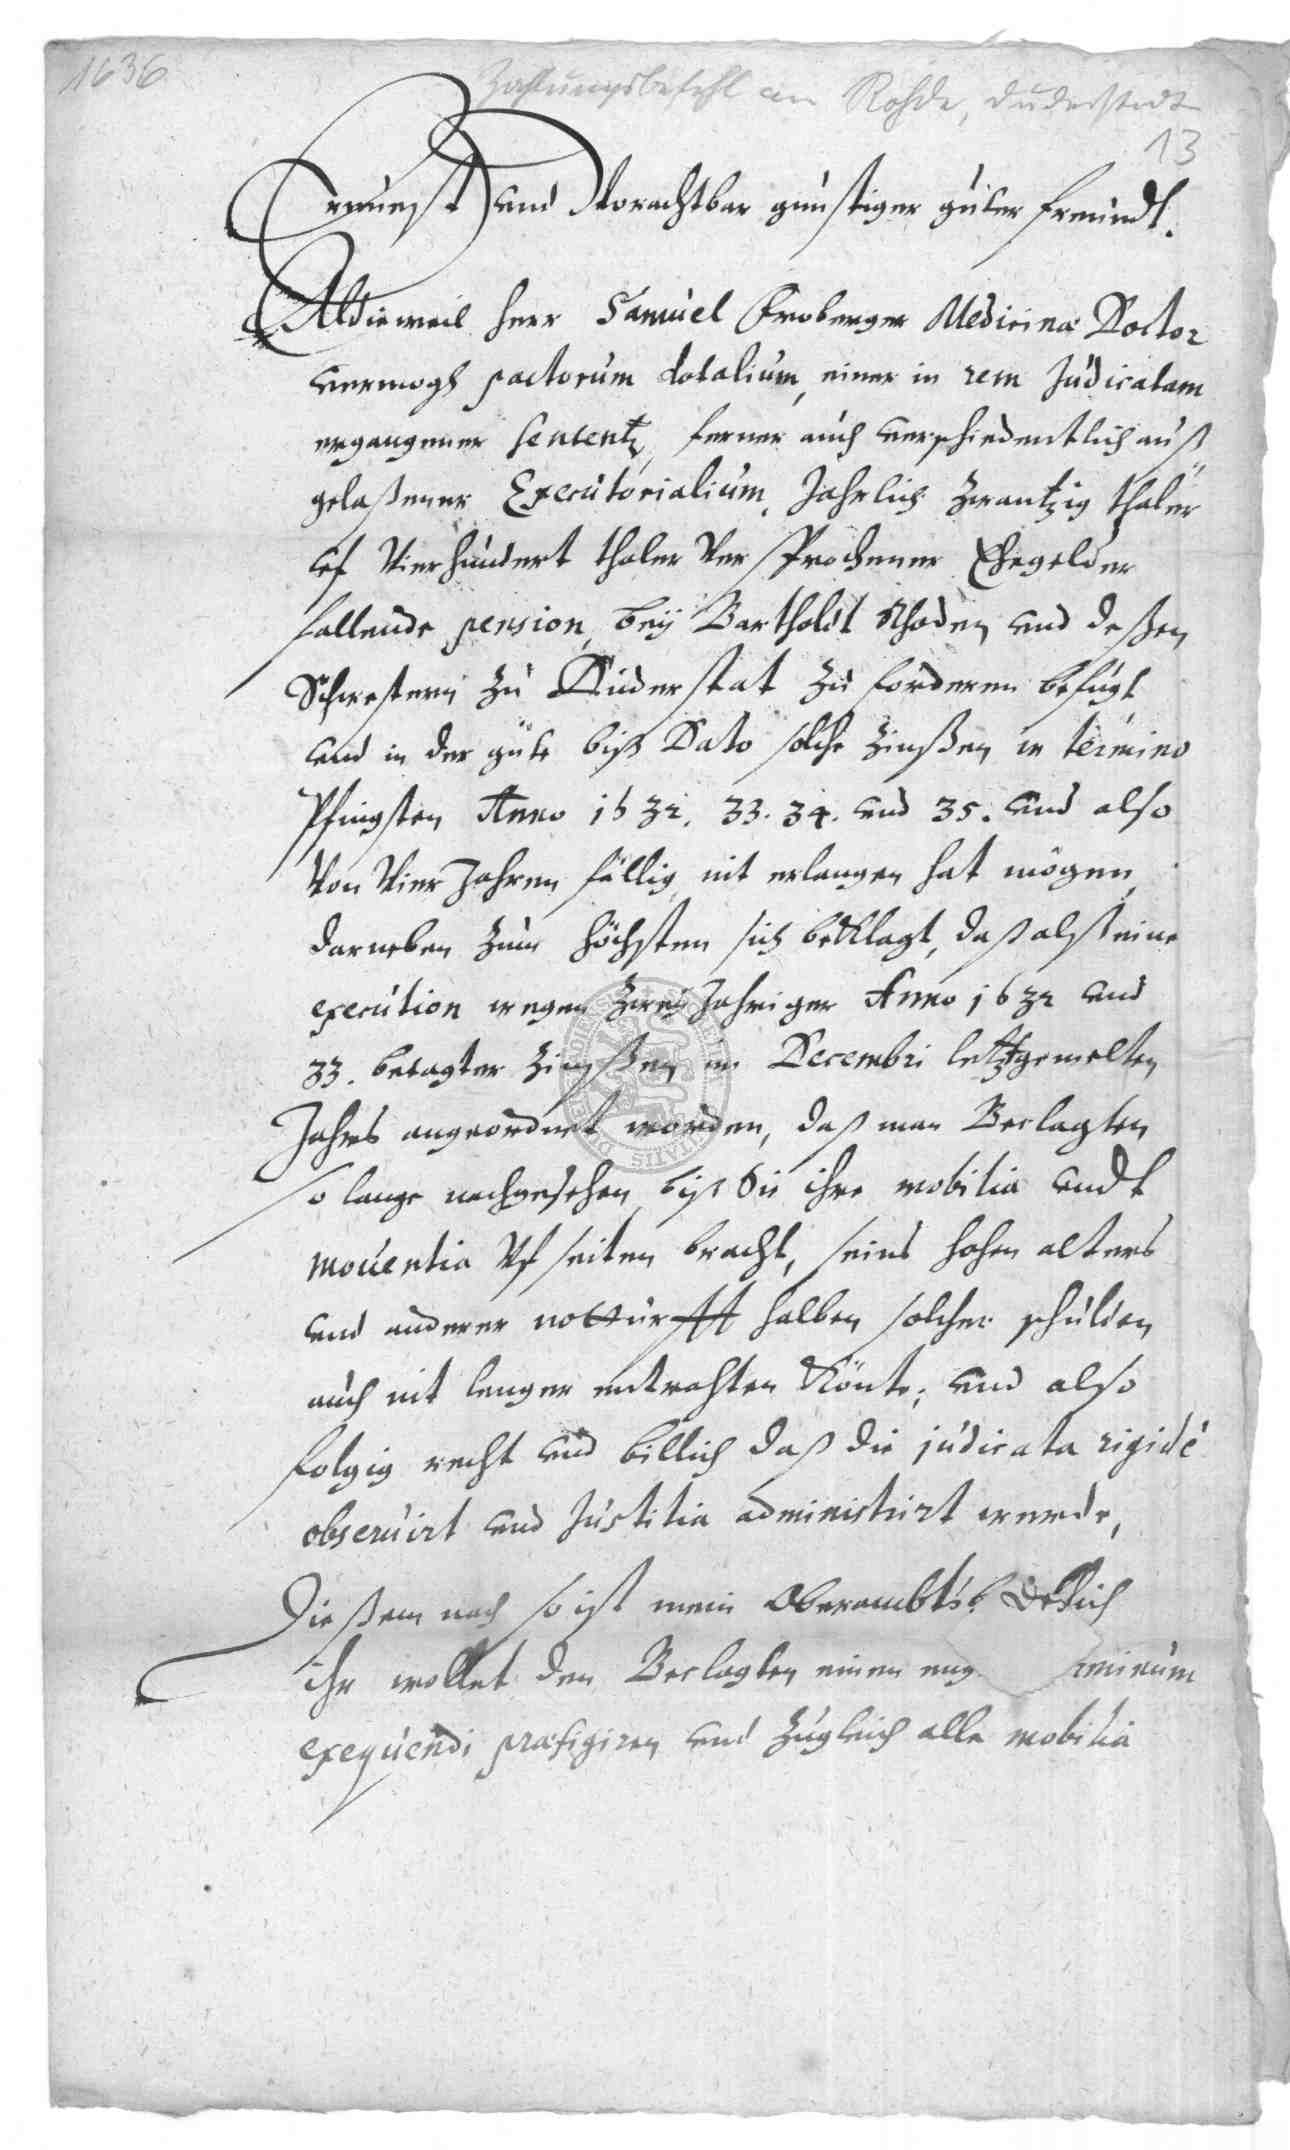 1636
Zahlungsbefehl an Rohde, Duderstadt
13
Ernuest und Vorachtbar günstiger guter freundt.
Aldieweil Herr Samuel Froberger Medicinæ Doctor
vermogh pactorum dotalium, einer in rem Judicatam
ergangener Sententz, ferner auch verschiedentlich auß
gelaßener Executorialium, Jahrlich zwantzig thaler
uf Vierhundert thaler Versprochener Ehegelder
fallende pension, beÿ Bartholdt Rhoden und deßen
Schwestern zu Duderstat zu forderen befugt
und in der güte biß Dato solche Zinßen in termino
Pfingsten Anno 1632. 33. 34. und 35. und also
Von Vier Jahren fällig nit erlangen hat mögen,
darneben zum höchsten sich beklagt, daß alß eine
execution wegen zweÿ Jahriger Anno 1632 und
33. betagter Zinßen im Decembri letztgemelten
Jahrs angeordnet worden, daß man Beclagten
so lange nachgesehen biß Sie ihre mobilia undt
mouentia Uf seiten bracht, seines hohen alters
und anderer notturfft halben solcher schulden
auch nit lenger entrahten Könte, und also
folgig recht und billich daß die judicata rigidè
obseruirt und Justitia administrirt werde,
Dießem nach so ist mein Oberambts
ihr wollet den Beclagten einen eng minum
exequendi præfigiren und zugleich alle mobilia